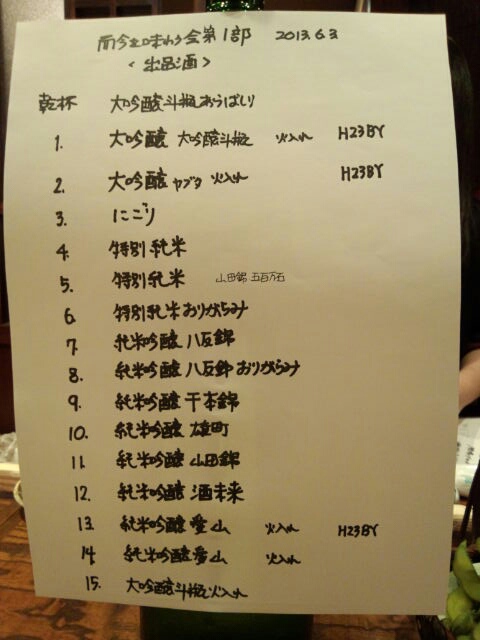 而今を味わう会第1部 2013.6.3
<出品酒>
乾杯 大吟醸斗瓶あらばしり
1. 大吟醸 大吟醸斗瓶 火入れ H23BY
2. 大吟醸 ヤブタ 火入れ H23BY
3. にごり
4. 特別純米
5. 特別純米 山田錦 五百万石
6. 特別純米おりがらみ
7. 純米吟醸 八反錦
8. 純米吟醸 八反錦 おりがらみ
9. 純米吟醸 千本錦
10. 純米吟醸 雄町
11. 純米吟醸 山田錦
12. 純米吟醸 酒未来
13. 純米吟醸 愛山 火入れ H23BY
14. 純米吟醸 愛山 火入れ
15. 大吟醸斗瓶火入れ